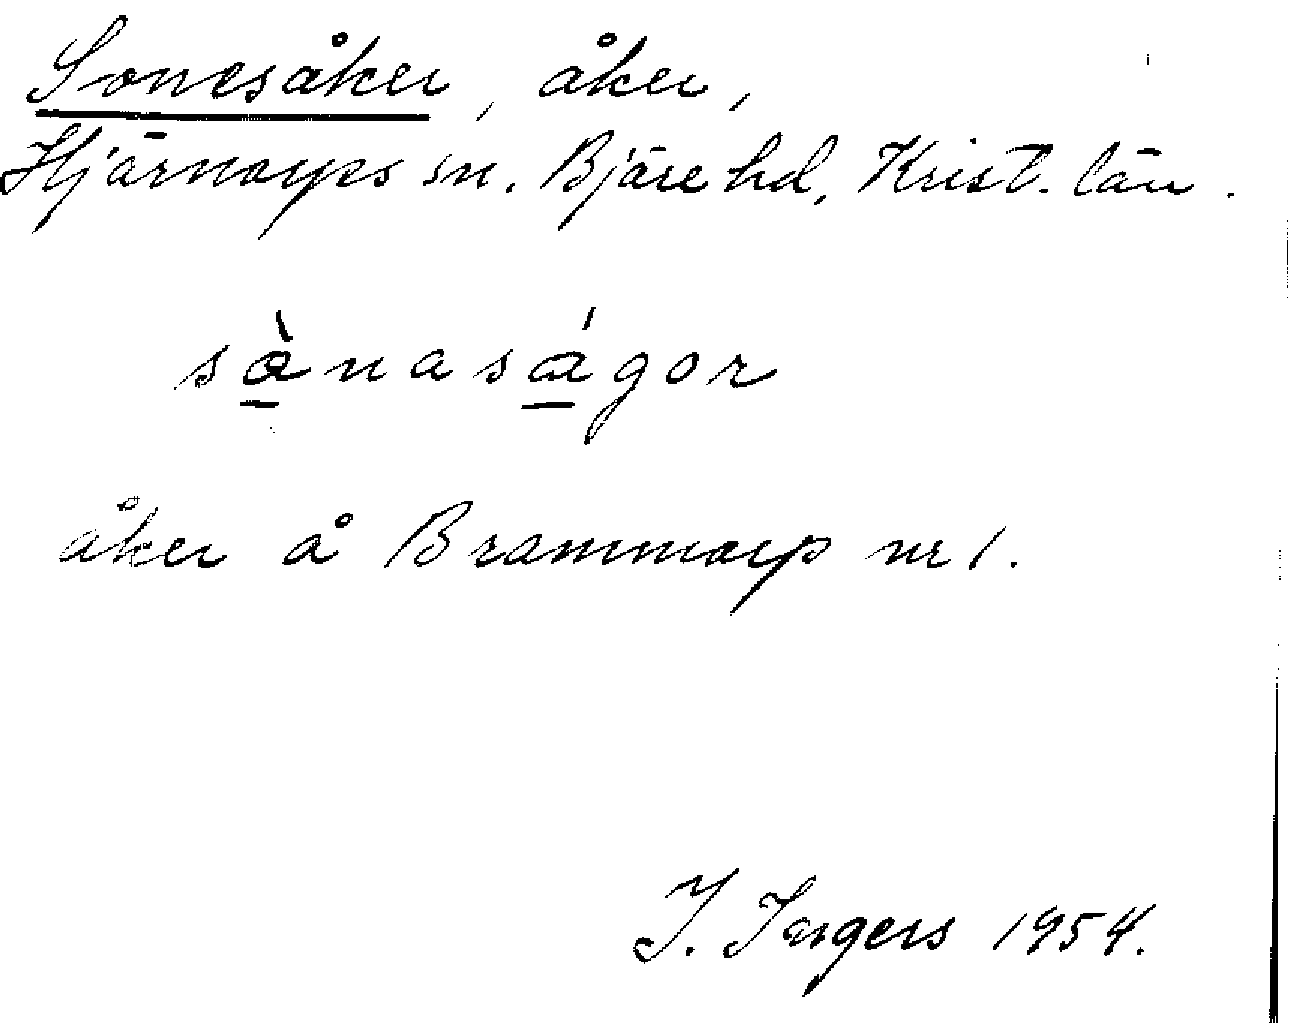 Sonesåker, åker,
Hjärnarps sn. Bjäre hd, Krist. län.
sànaságor
åker å Brammarp nr 1.
I. Ingers 1954.